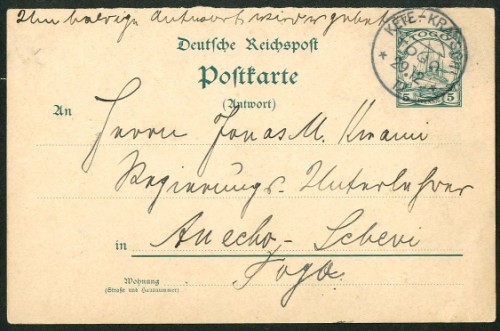 Um baldige Antwort wird gebeten
Deutsche Reichspost
Postkarte
(Antwort)
TOGO
5 5
KETE-KRATSCHI
TOGO
29.12
An Herrn Jonas M. Kwami
Regierungs-Unterlehrer
in Anecho - Sebevi
Togo.
Wohnung
(Straße und Hausnummer)